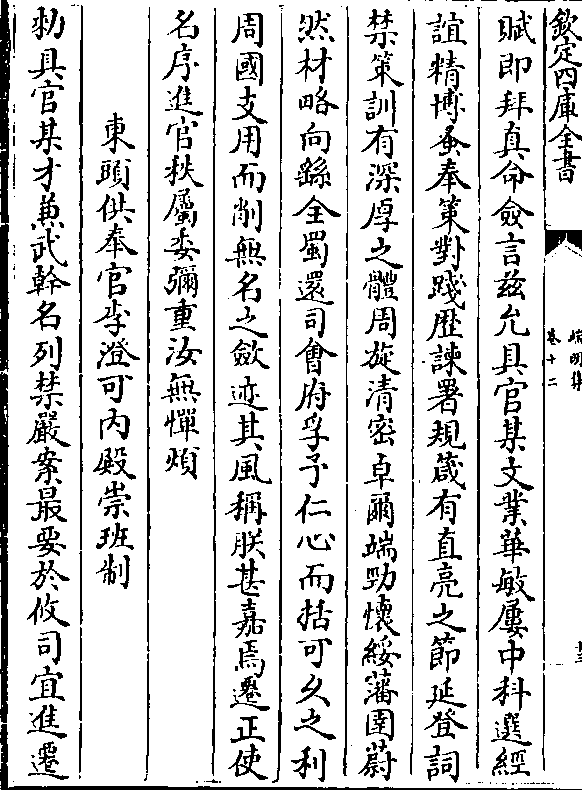 欽定四庫全書
端明集
卷十二
賦即拜真命僉言茲允具官某文業華敏屢中科選經
誼精博蚤奉策對踐歴諫署規箴有直亮之節延登詞
禁策訓有深厚之體周旋清密卓爾端勁懷綏藩圉蔚
然材略向繇全蜀還司會府孚予仁心而括可久之利
周國支用而削無名之斂迹其風稱朕甚嘉焉遷正使
名序進官秩屬委彌重汝無憚煩
東頭供奉官李澄可内殿崇班制
勑具官某才兼武幹名列禁嚴案最要於攸司宜進遷